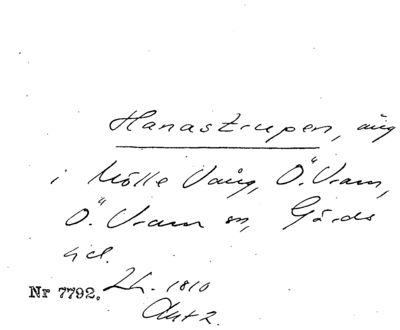 Hanastrupen, äng
i Mölle Vång, Ö. Vram,
Ö. Vram sn, Gärds
hd.
Nr 7792. LL. 1810
Akt 2.